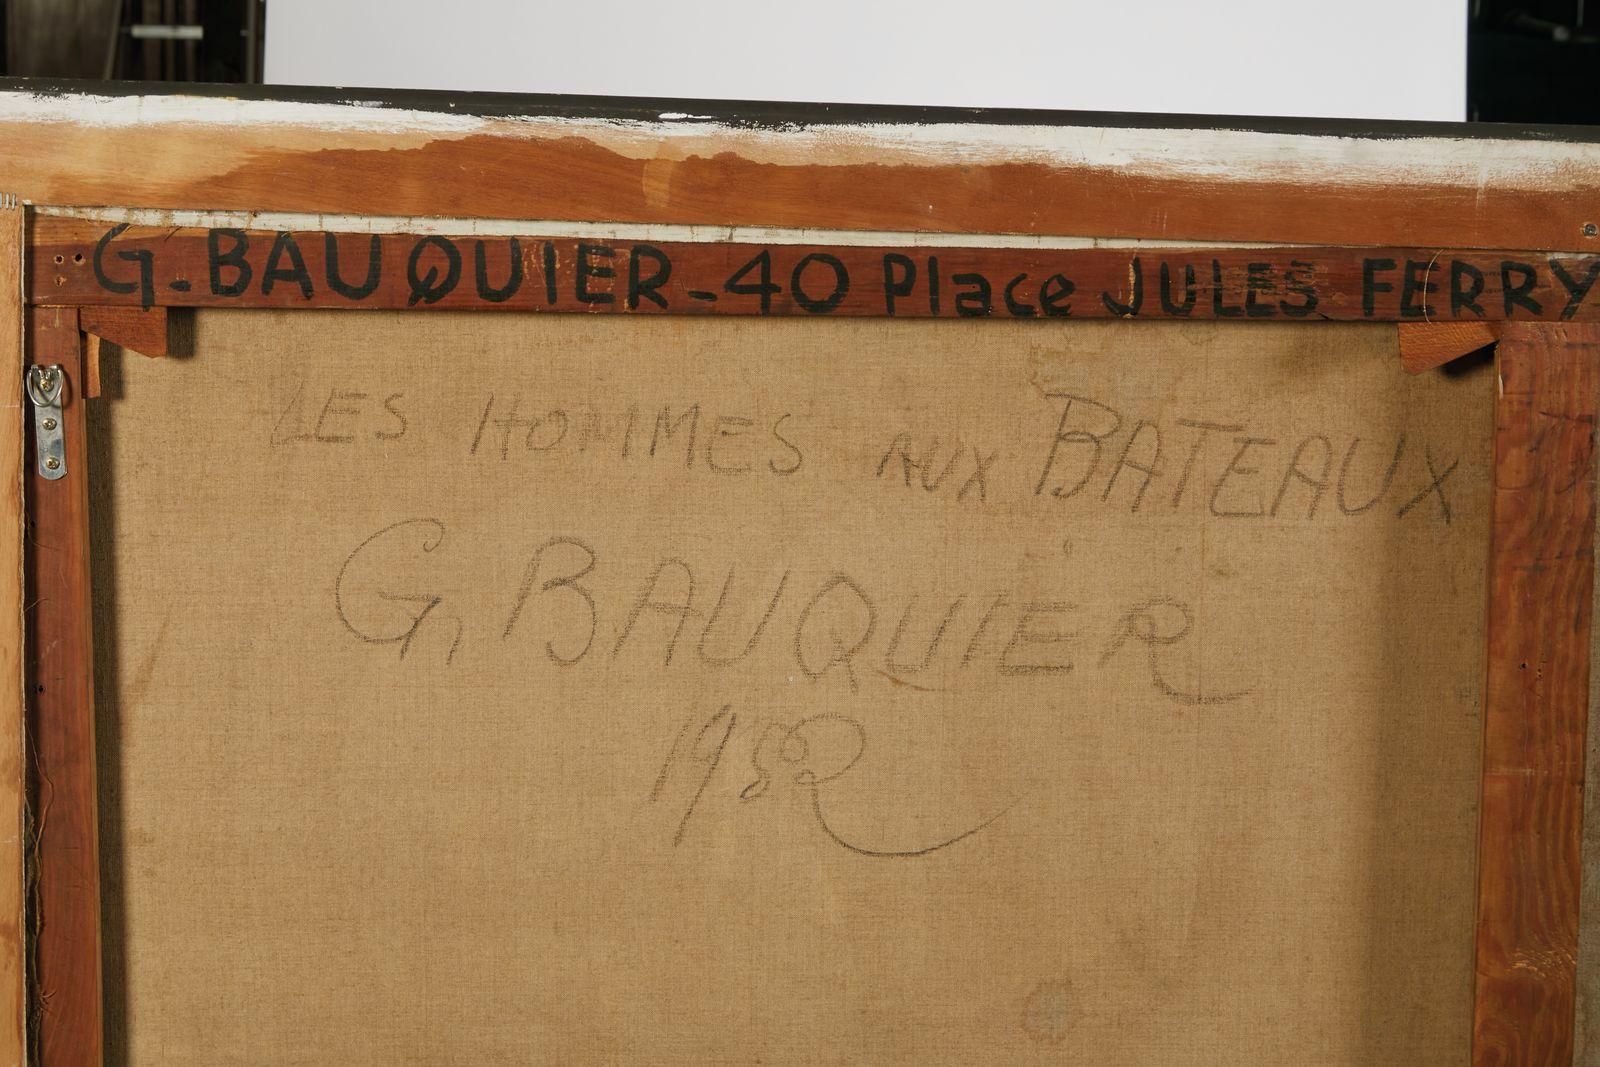 G. BAUQUIER - 40 Place JULES FERRY
LES HOMMES AUX BATEAUX
G BAUQUIER
1982